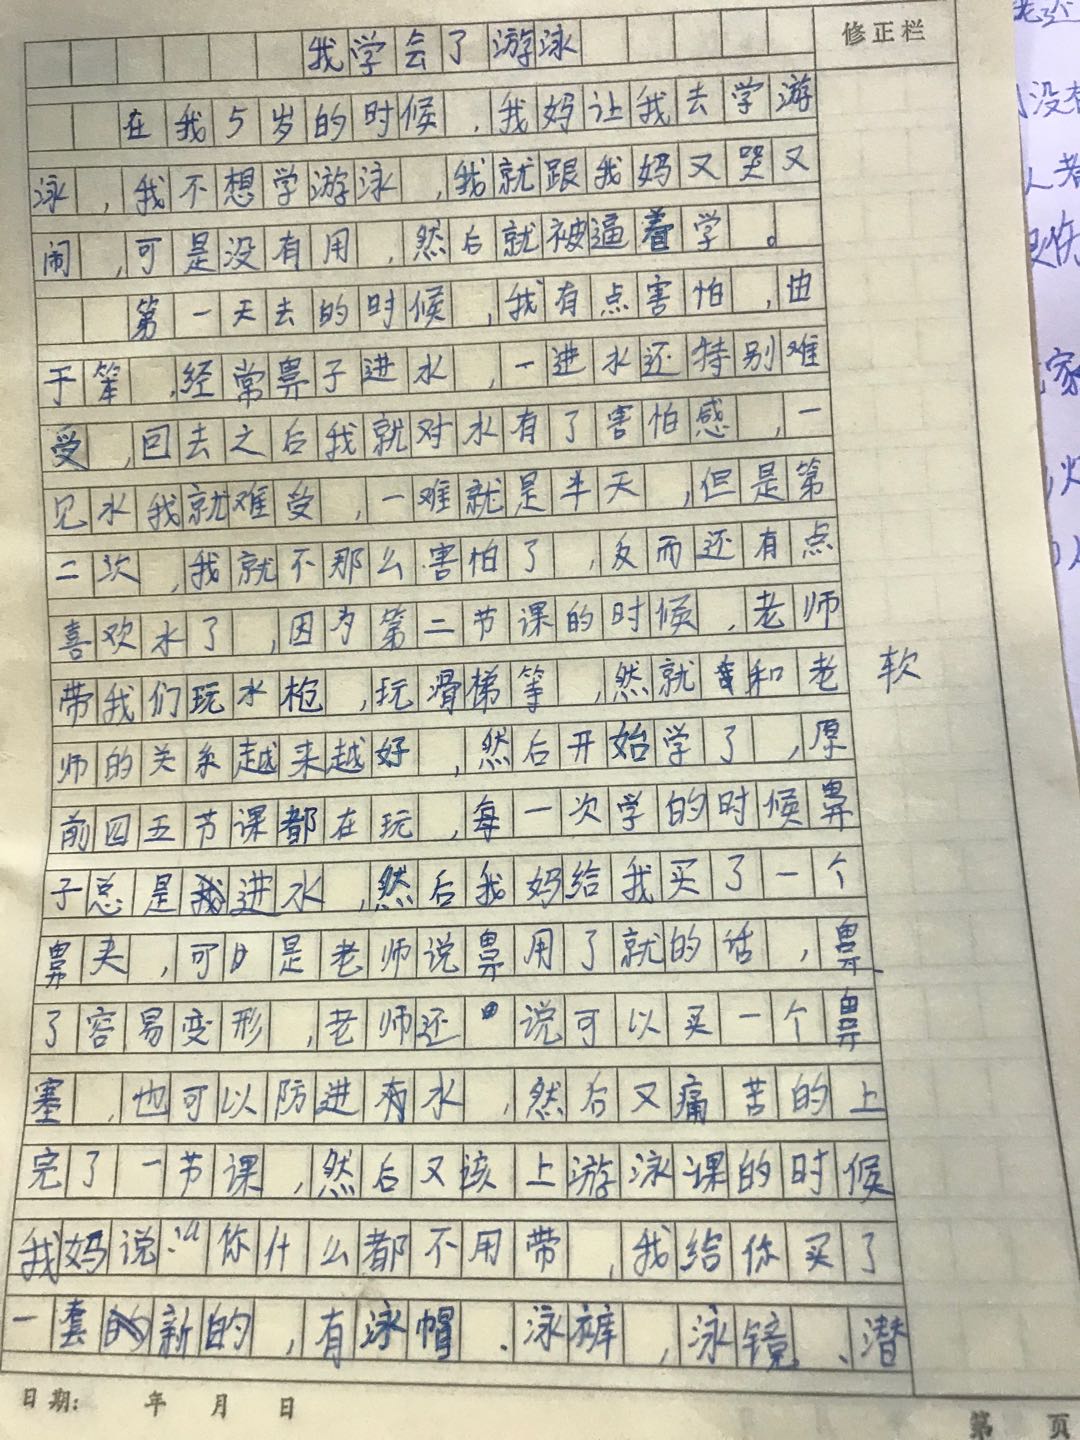 修正栏
我学会了游泳
在我5岁的时候,我妈让我去学游
泳,我不想学游泳,我就跟我妈又哭又
闹,可是没有用,然后就被逼着学。
第一天去的时候,我有点害怕,由
于笨,经常鼻子进水,一进水还特别难
受,回去之后我就对水有了害怕感,一
见水我就难受,一难就是半天,但是第
二次,我就不那么害怕了,反而还有点
喜欢水了,因为第二节课的时候,老师
带我们玩水枪,玩滑梯等,然就和老
软
师的关系越来越好,然后开始学了,原
前四五节课都在玩,每一次学的时候鼻
子总是进水,然后我妈给我买了一个
鼻夹,可是老师说鼻用了就的话,鼻
了容易变形,老师还说可以买一个鼻
塞,也可以防进水,然后又痛苦的上
完了一节课,然后又该上游泳课的时候
我妈说:“你什么都不用带,我给你买了
一套新的,有泳帽、泳裤,泳镜、潜
日期: 年 月 日
第 页
老还
没有
人者
家